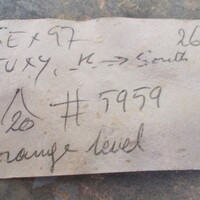 EX97 26
TUXY, K → South
20 # 5959
orange level